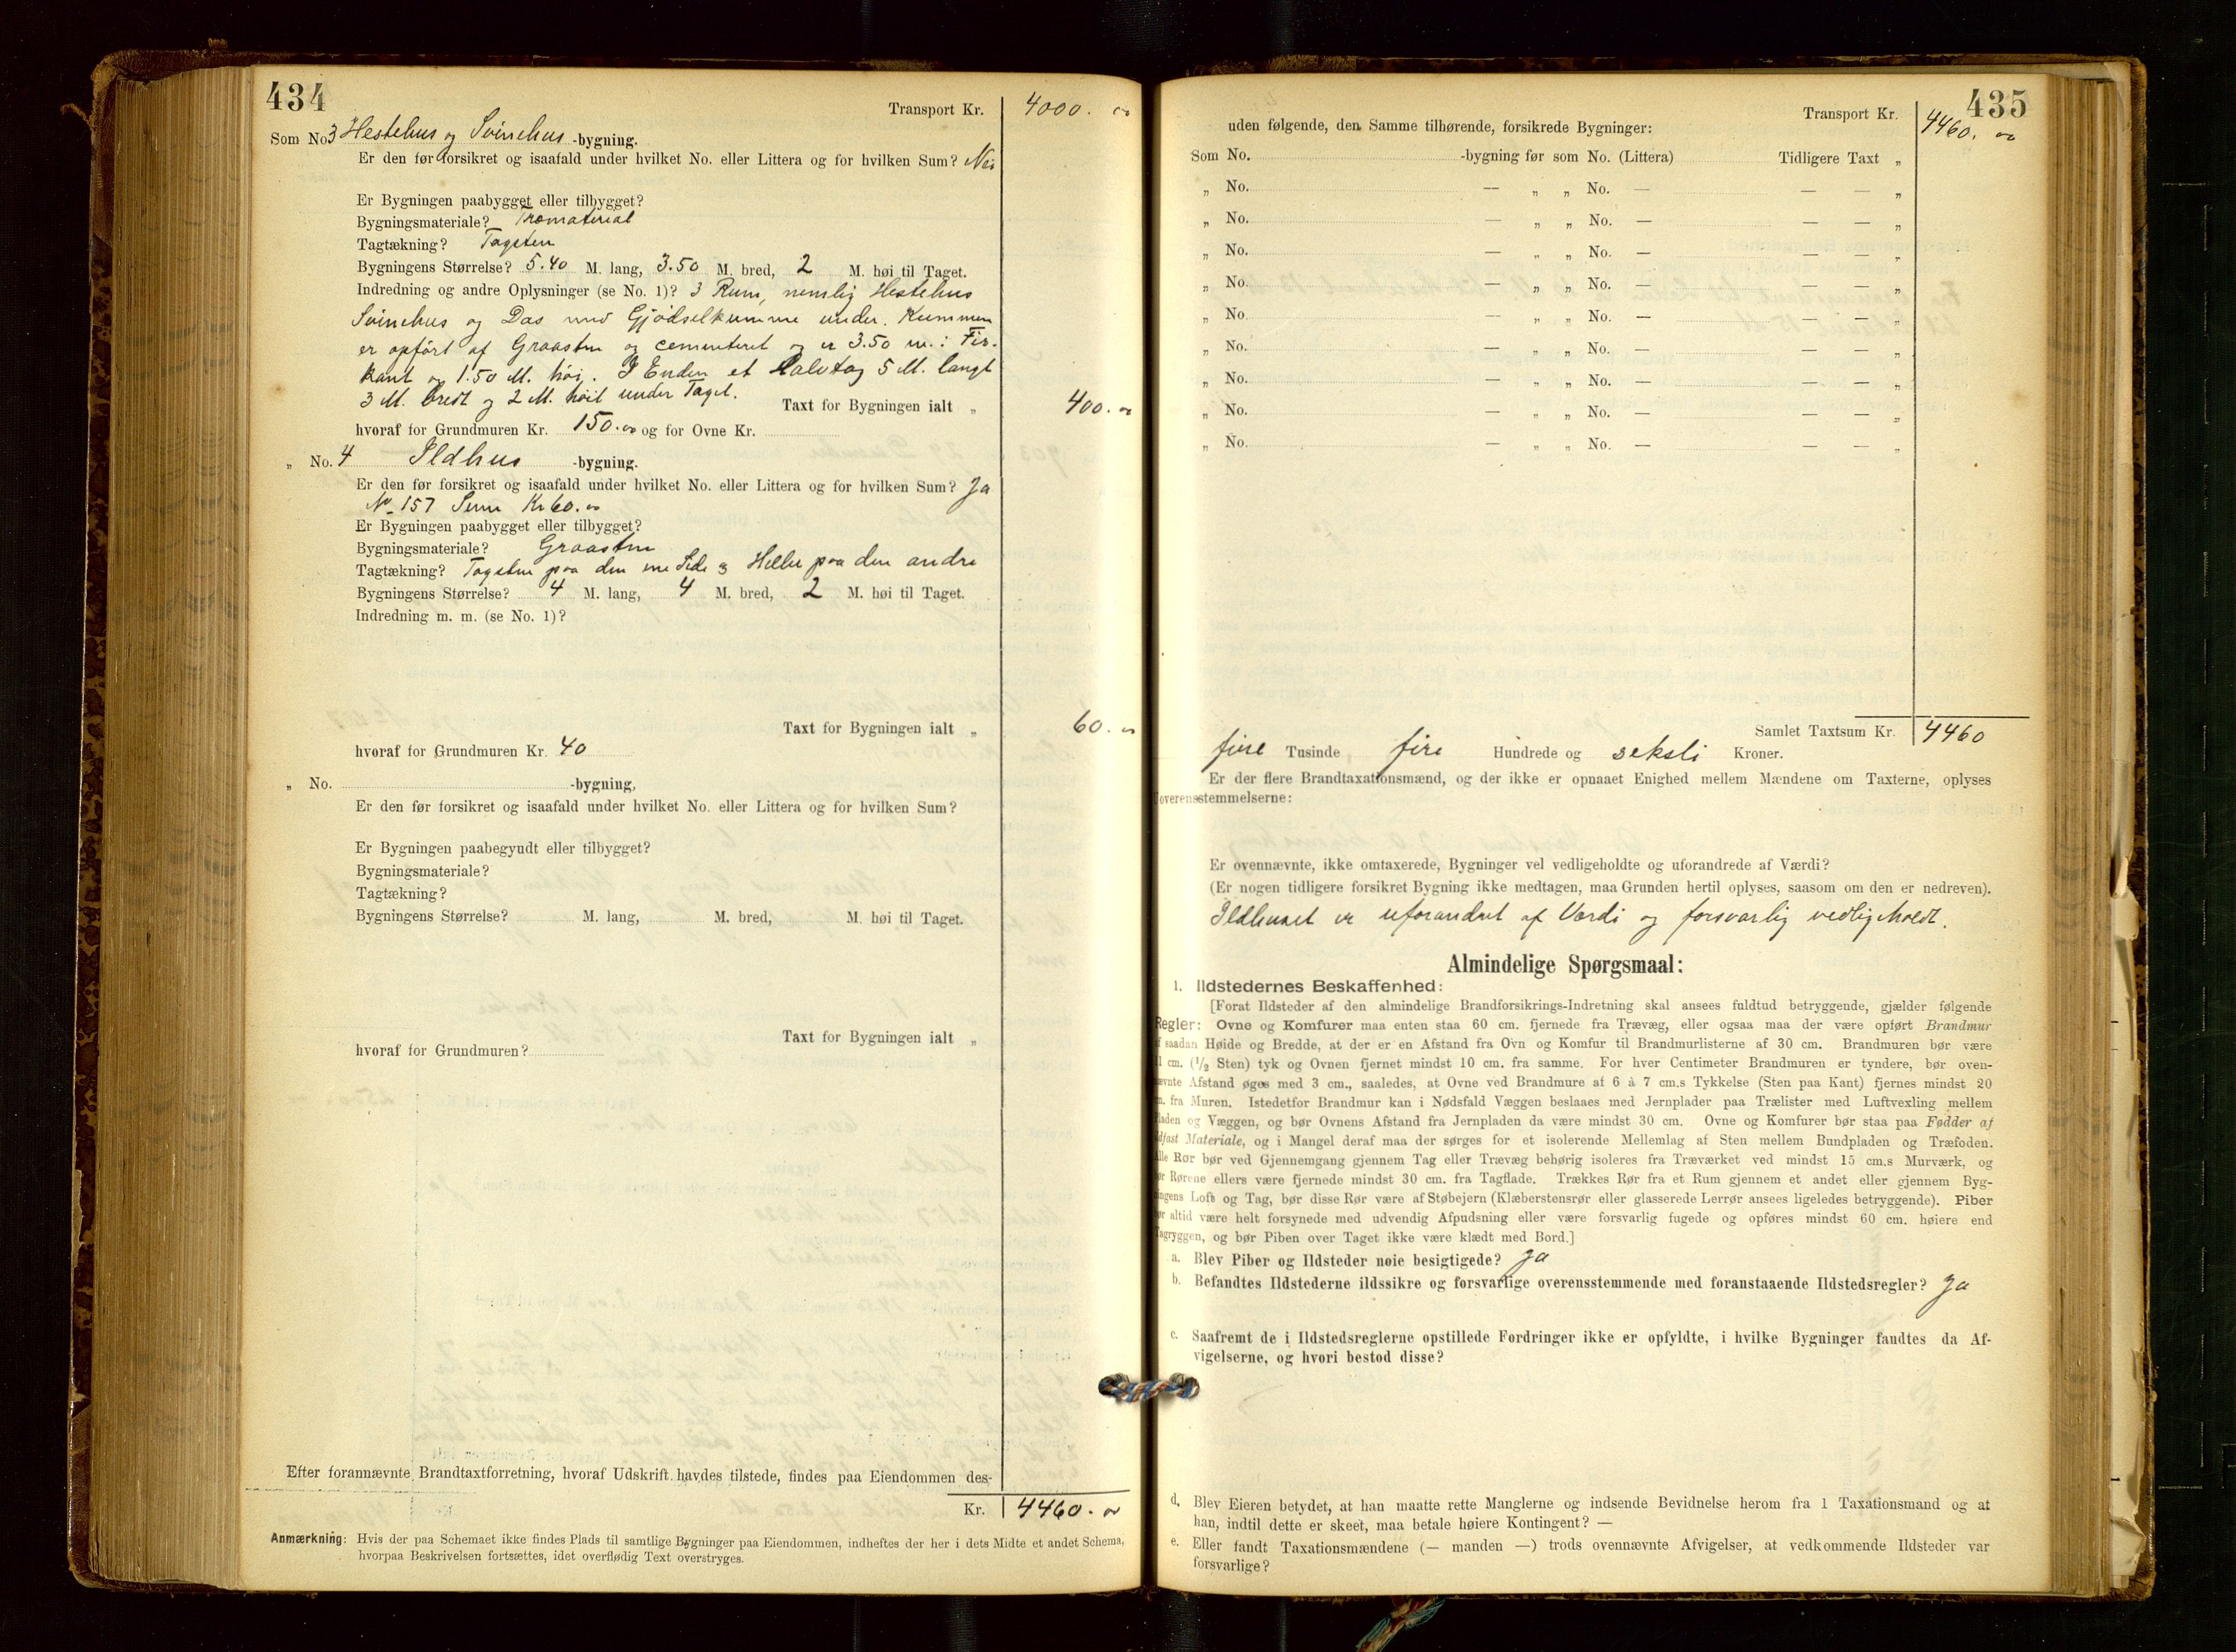 434
Transport Kr. 4000. 00
Som No 3 Hestehus og Svinehus -bygning.
Er den før forsikret og isaafald under hvilket No. eller Littera og for hvilken Sum? Nei
Er Bygningen paabygget eller tilbygget?
Bygningsmateriale? Træmaterial
Tagtækning? Tagsten
Bygningens Størrelse? 5.40 M. lang, 3.50 M. bred, 2 M. høi til Taget.
Indredning og andre Oplysninger (se No. 1)? 3 Rum, nemlig Hestehus
Svinehus og Das med Gjødselkumme under. Kummen
er opført af Graasten og cementeret og er 3.50 m. i Fir-
kant og 1.50 M. høi. I Enden et Halvtag 5 M. langt
3 M. bredt og 2 M. høit under Taget.
Taxt for Bygningen ialt „ 400. 00
hvoraf for Grundmuren Kr. 150.00 og for Ovne Kr.
„ No. 4 Ildhus -bygning.
Er den før forsikret og isaafald under hvilket No. eller Littera og for hvilken Sum? Ja
No 157 Sum Kr 60.00
Er Bygningen paabygget eller tilbygget?
Bygningsmateriale? Graasten
Tagtækning? Tagsten paa den ene Side og Heller paa den andre
Bygningens Størrelse? 4 M. lang, 4 M. bred, 2 M. høi til Taget.
Indredning m. m. (se No. 1)?
Taxt for Bygningen ialt „ 60. 00
hvoraf for Grundmuren Kr. 40
„ No. -bygning,
Er den før forsikret og isaafald under hvilket No. eller Littera og for hvilken Sum?
Er Bygningen paabegyndt eller tilbygget?
Bygningsmateriale?
Tagtækning?
Bygningens Størrelse? M. lang, M. bred, M. høi til Taget.
Taxt for Bygningen ialt „
hvoraf for Grundmuren?
Efter forannævnte Brandtaxtforretning, hvoraf Udskrift havdes tilstede, findes paa Eiendommen des-
Kr. 4460. 00
Anmærkning: Hvis der paa Schemaet ikke findes Plads til samtlige Bygninger paa Eiendommen, indheftes der her i dets Midte et andet Schema,
hvorpaa Beskrivelsen fortsættes, idet overflødig Text overstryges.
435
Transport Kr. 4460. 00
uden følgende, den Samme tilhørende, forsikrede Bygninger:
Som No. -bygning før som No. (Littera) Tidligere Taxt „
„ No. — „ „ No. — — — „
„ No. — „ „ No. — — — „
„ No. — „ „ No. — — — „
„ No. — „ „ No. — — — „
„ No. — „ „ No. — — — „
„ No. — „ „ No. — — — „
„ No. — „ „ No. — — — „
„ No. — „ „ No. — — — „
„ No. — „ „ No. — — — „
Samlet Taxtsum Kr. 4460
fire Tusinde fire Hundrede og seksti Kroner.
Er der flere Brandtaxationsmænd, og der ikke er opnaaet Enighed mellem Mændene om Taxterne, oplyses
Uoverensstemmelserne:
Er ovennævnte, ikke omtaxerede, Bygninger vel vedligeholdte og uforandrede af Værdi?
(Er nogen tidligere forsikret Bygning ikke medtagen, maa Grunden hertil oplyses, saasom om den er nedreven).
Ildhuset er uforandret af Værdi og forsvarlig vedligeholdt.
Almindelige Spørgsmaal:
1. Ildstedernes Beskaffenhed:
[Forat Ildsteder af den almindelige Brandforsikrings-Indretning skal ansees fuldtud betryggende, gjælder følgende
Regler: Ovne og Komfurer maa enten staa 60 cm. fjernede fra Trævæg, eller ogsaa maa der være opført Brandmur
f saadan Høide og Bredde, at der er en Afstand fra Ovn og Komfur til Brandmurlisterne af 30 cm. Brandmuren bør være
1 cm. (1/2 Sten) tyk og Ovnen fjernet mindst 10 cm. fra samme. For hver Centimeter Brandmuren er tyndere, bør oven-
nævnte Afstand øges med 3 cm., saaledes, at Ovne ved Brandmure af 6 à 7 cm.s Tykkelse (Sten paa Kant) fjernes mindst 20
m. fra Muren. Istedetfor Brandmur kan i Nødsfald Væggen beslaaes med Jernplader paa Trælister med Luftvexling mellem
Pladen og Væggen, og bør Ovnens Afstand fra Jernpladen da være mindst 30 cm. Ovne og Komfurer bør staa paa Fødder af
ldfast Materiale, og i Mangel deraf maa der sørges for et isolerende Mellemlag af Sten mellem Bundpladen og Træfoden.
Alle Rør bør ved Gjennemgang gjennem Tag eller Trævæg behørig isoleres fra Træværket ved mindst 15 cm.s Murværk, og
ør Rørene ellers være fjernede mindst 30 cm. fra Tagflade. Trækkes Rør fra et Rum gjennem et andet eller gjennem Byg-
ningens Loft og Tag, bør disse Rør være af Støbejern (Klæberstensrør eller glasserede Lerrør ansees ligeledes betryggende). Piber
ør altid være helt forsynede med udvendig Afpudsning eller være forsvarlig fugede og opføres mindst 60 cm. høiere end
Tagryggen, og bør Piben over Taget ikke være klædt med Bord.]
a. Blev Piber og Ildsteder nøie besigtigede? Ja
b. Befandtes Ildstederne ildssikre og forsvarlige overensstemmende med foranstaaende Ildstedsregler? Ja
c. Saafremt de i Ildstedsreglerne opstillede Fordringer ikke er opfyldte, i hvilke Bygninger fandtes da Af-
vigelserne, og hvori bestod disse?
d. Blev Eieren betydet, at han maatte rette Manglerne og indsende Bevidnelse herom fra 1 Taxationsmand og at
han, indtil dette er skeet, maa betale høiere Kontingent? —
e. Eller fandt Taxationsmændene (— manden —) trods ovennævnte Afvigelser, at vedkommende Ildsteder var
forsvarlige?